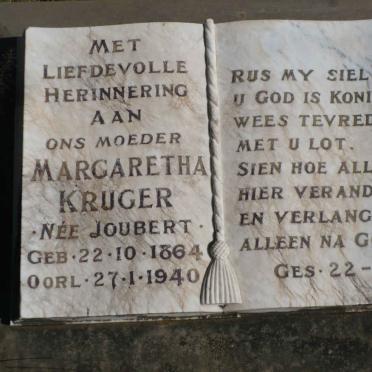 MET
LIEFDEVOLLE
HERINNERING
AAN
ONS MOEDER
MARGARETHA
KRUGER
·NÉE JOUBERT·
GEB·22·10·1864
OORL·27·1·1940
RUS MY SIEL
U GOD IS KONI
WEES TEVRED
MET U LOT.
SIEN HOE ALL
HIER VERAND
EN VERLANG
ALLEEN NA G
GES·22-